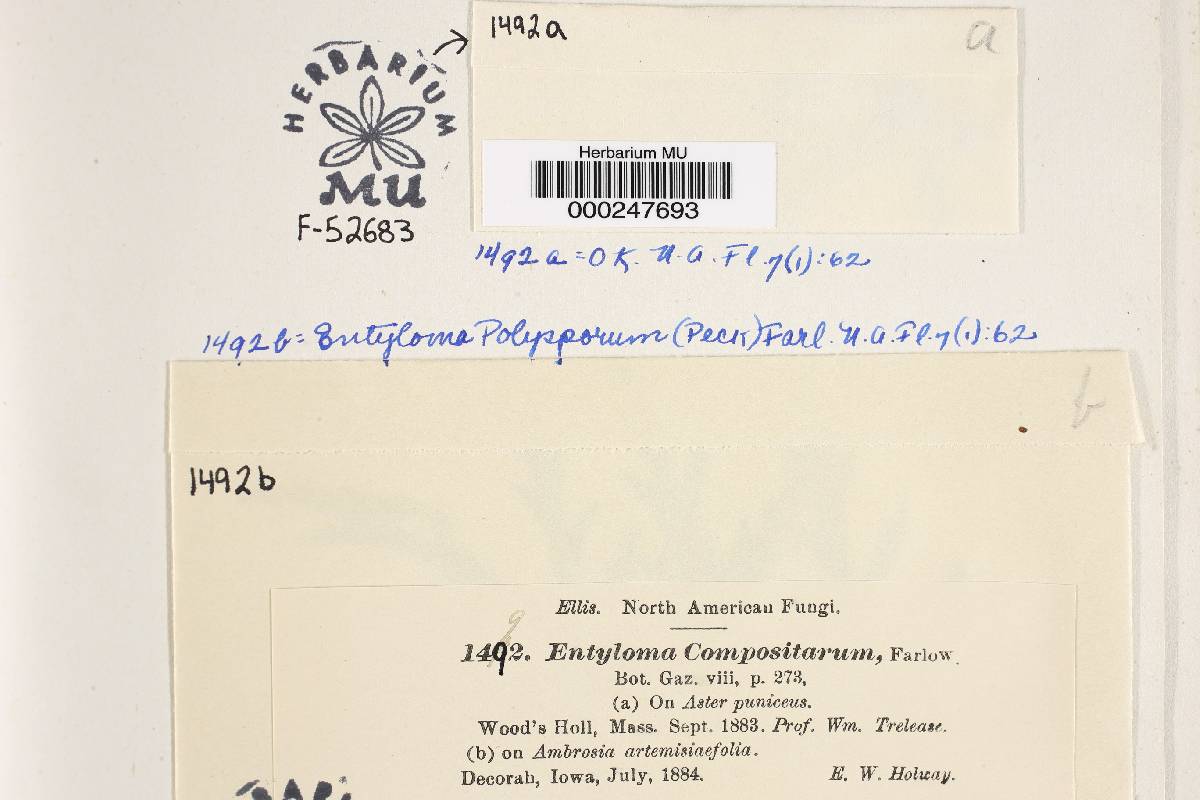 1492a
a
HERBARIUM
MU
F-52683
Herbarium MU
000247693
1492a = OK. N.A. Fl. 7(1):62
1492b = Entyloma Polysporum (Peck) Farl. N.A. Fl. 7(1):62
b
1492b
Ellis. North American Fungi.
1492. Entyloma Compositarum, Farlow.
Bot. Gaz. viii, p. 273,
(a) On Aster puniceus.
Wood's Holl, Mass. Sept. 1883. Prof. Wm. Trelease.
(b) on Ambrosia artemisiaefolia.
Decorah, Iowa, July, 1884. E. W. Holway.